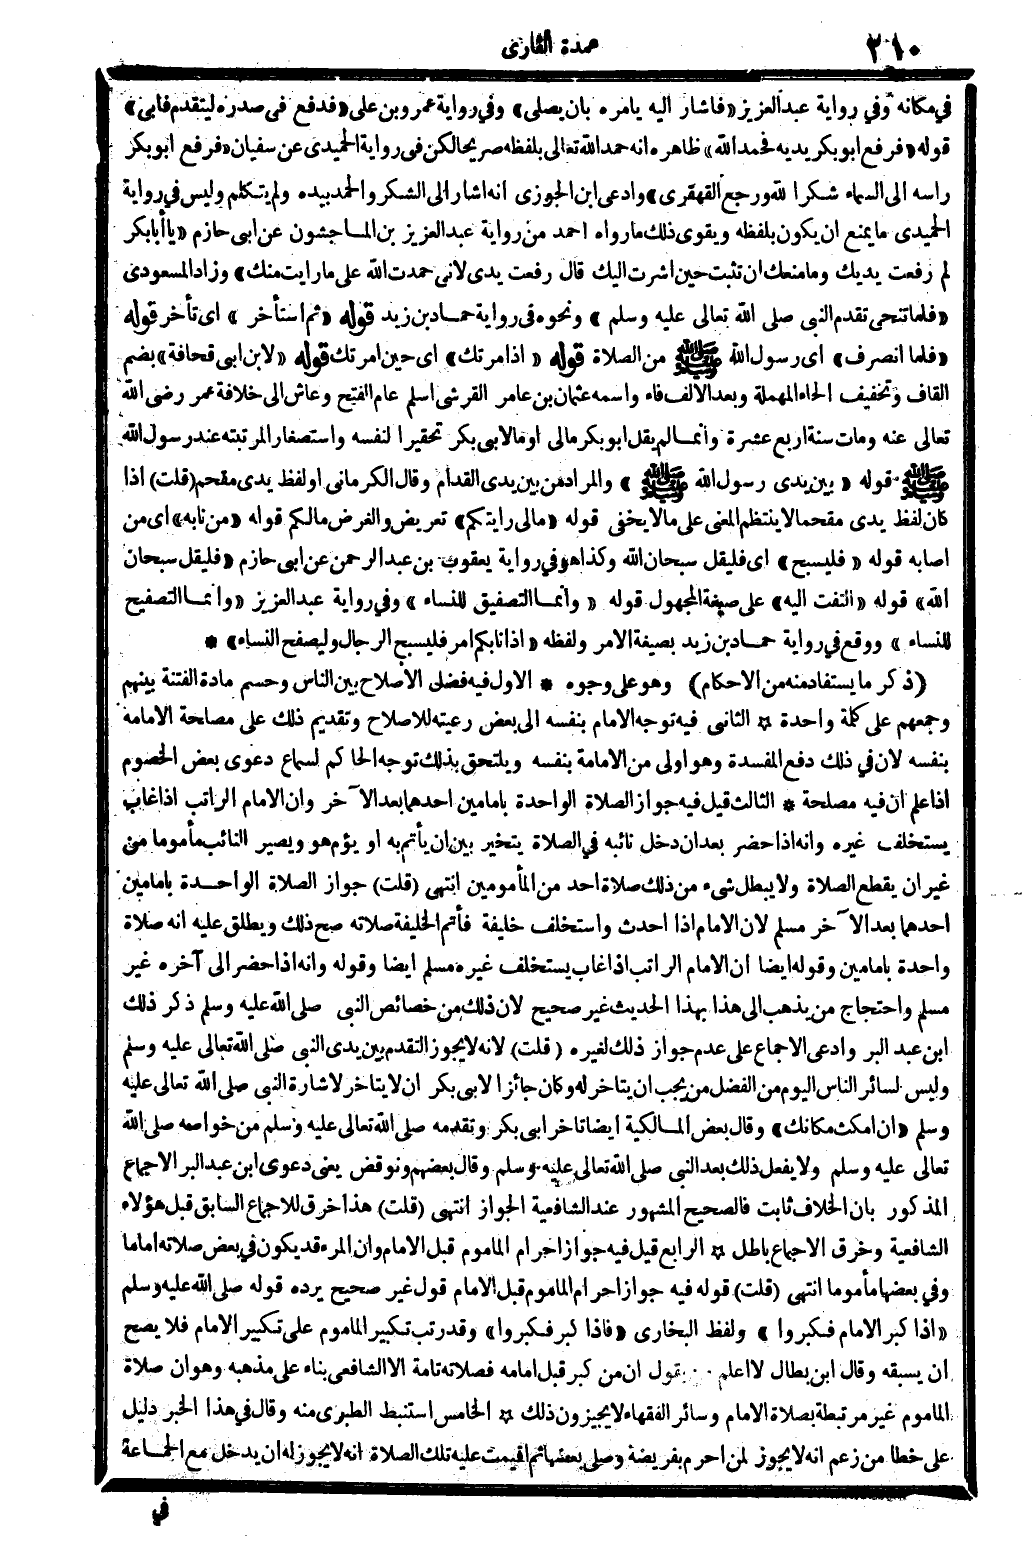 ٢١٠
عمدة القارى
في مكانه وفي رواية عبدالعزيز «فاشار اليه يامره بان يصلى» وفي رواية عمرو بن على «فدفع فى صدره ليتقدم فابى»
قوله «فرفع ابو بكر يديه فحمد الله» ظاهره انه حمد الله تعالى بلفظه صريحا لكن فى رواية الحميدى عن سفيان «فرفع ابوبكر
راسه الى السماء شكرا لله ورجع القهقرى» وادعى ابن الجوزى انه اشار الى الشكر والحمد بيده ولم يتكلم وليس في رواية
الحميدى ما يمنع ان يكون بلفظه ويقوى ذلك مارواه احمد من رواية عبدالعزيز بن الماجشون عن ابى حازم «يا أبا بكر
لم رفعت يديك وما منعك ان تثبت حين اشرت اليك قال رفعت يدى لانى حمدت الله على ما رايت منك» وزاد المسعودى
«فلما تنحى تقدم النبى صلى الله تعالى عليه وسلم» ونحوه فى رواية حماد بن زيد قوله «ثم استأخر» اى تأخر قوله
«فلما انصرف» اى رسول الله ﷺ من الصلاة قوله «اذ امرتك» اى حين امرتك قوله «لابن ابى قحافة» بضم
القاف وتخفيف الحاء المهملة وبعد الالف فاء واسمه عثمان بن عامر القرشى اسلم عام الفتح وعاش الى خلافة عمر رضى الله
تعالى عنه ومات سنة اربع عشرة وانما لم يقل ابو بكر مالى او مالابى بكر تحقيرا لنفسه واستصغارا لمرتبته عند رسول الله
ﷺ قوله «بين يدى رسول الله ﷺ» والمراد من بين يدى القدام وقال الكرمانى او لفظ يدى مقحم (قلت) اذا
كان لفظ يدى مقحما لا ينتظم المعنى على ما لا يخفى قوله «مالى رايتكم» تعريض والغرض مالكم قوله «من نابه» اى من
اصابه قوله «فليسبح» اى فليقل سبحان الله وكذا هو في رواية يعقوب بن عبد الرحمن عن ابى حازم «فليقل سبحان
الله» قوله «التفت اليه» على صيغة المجهول قوله «وانما التصفيق للنساء» وفي رواية عبد العزيز «وانما التصفيح
للنساء» ووقع في رواية حماد بن زيد بصيغة الامر ولفظه «اذا نابكم امر فليسبح الرجال وليصفح النساء» *
(ذكر ما يستفاد منه من الاحكام) وهو على وجوه * الاول فيه فضل الاصلاح بين الناس وحسم مادة الفتنة بينهم
وجمعهم على كلمة واحدة * الثانى فيه توجه الامام بنفسه الى بعض رعيته للاصلاح وتقديم ذلك على مصلحة الامامة
بنفسه لان في ذلك دفع المفسدة وهو اولى من الامامة بنفسه ويلتحق بذلك توجه الحاكم لسماع دعوى بعض الخصوم
اذا علم ان فيه مصلحة * الثالث قيل فيه جواز الصلاة الواحدة بامامين احدهما بعد الآخر وان الامام الراتب اذا غاب
يستخلف غيره وانه اذا حضر بعد ان دخل نائبه في الصلاة يتخير بين ان يأتم به او يؤم هو ويصير النائب مأموما من
غير ان يقطع الصلاة ولا يبطل شىء من ذلك صلاة احد من المأمومين انتهى (قلت) جواز الصلاة الواحدة بامامين
احدهما بعد الآخر مسلم لان الامام اذا احدث واستخلف خليفة فأتم الخليفة صلاته صح ذلك ويطلق عليه انه صلاة
واحدة بامامين وقوله ايضا ان الامام الراتب اذا غاب يستخلف غيره مسلم ايضا وقوله وانه اذا حضر الى آخره غير
مسلم واحتجاج من يذهب الى هذا بهذا الحديث غير صحيح لان ذلك من خصائص النبى صلى الله عليه وسلم ذكر ذلك
ابن عبد البر وادعى الاجماع على عدم جواز ذلك لغيره (قلت) لانه لا يجوز التقدم بين يدى النبى صلى الله تعالى عليه وسلم
وليس لسائر الناس اليوم من الفضل من يجب ان يتاخر له وكان جائزا لابى بكر ان لا يتاخر لاشارة النبى صلى الله تعالى عليه
وسلم «ان امكث مكانك» وقال بعض المالكية ايضا تاخر ابى بكر وتقدمه صلى الله تعالى عليه وسلم من خواصه صلى الله
تعالى عليه وسلم ولا يفعل ذلك بعد النبى صلى الله تعالى عليه وسلم وقال بعضهم ونوقض يعنى دعوى ابن عبد البر الاجماع
المذكور بان الخلاف ثابت فالصحيح المشهور عند الشافعية الجواز انتهى (قلت) هذا خرق للاجماع السابق قبل هؤلاء
الشافعية وخرق الاجماع باطل * الرابع قيل فيه جواز احرام الماموم قبل الامام وان المرء قد يكون في بعض صلاته اماما
وفي بعضها مأموما انتهى (قلت) قوله فيه جواز احرام الماموم قبل الامام قول غير صحيح يرده قوله صلى الله عليه وسلم
«اذا كبر الامام فكبروا» ولفظ البخارى «فاذا كبر فكبروا» وقد رتب تكبير الماموم على تكبير الامام فلا يصح
ان يسبقه وقال ابن بطال لا اعلم يقول ان من كبر قبل امامه فصلاته تامة الا الشافعى بناء على مذهبه وهو ان صلاة
الماموم غير مرتبطة بصلاة الامام وسائر الفقهاء لا يجيزون ذلك * الخامس استنبط الطبرى منه وقال في هذا الخبر دليل
على خطا من زعم انه لا يجوز لمن احرم بفريضة وصلى بعضها ثم اقيمت عليه تلك الصلاة انه لا يجوز له ان يدخل مع الجماعة
في